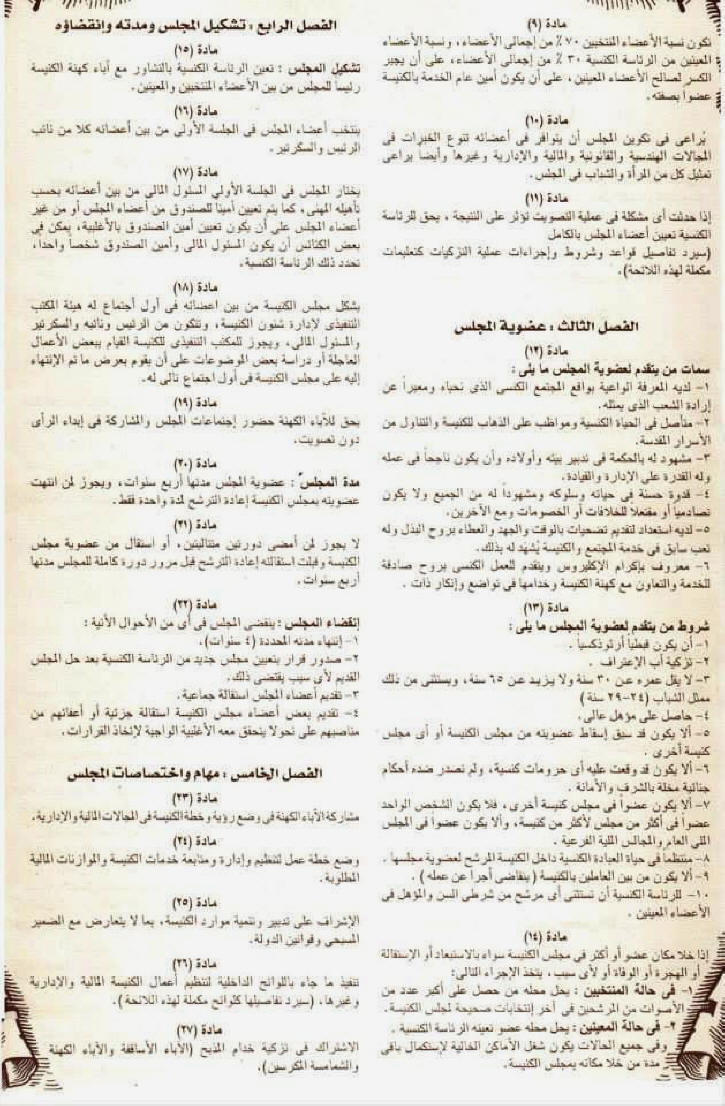 مادة (٩)
تكون نسبة الأعضاء المنتخبين ٧٠٪ من إجمالى الأعضاء، ونسبة الأعضاء
المعينين من الرئاسة الكنسية ٣٠٪ من إجمالى الأعضاء، على أن يجبر
الكسر لصالح الأعضاء المعينين، على أن يكون أمين عام الخدمة بالكنيسة
عضواً بصفته.
مادة (١٠)
يُراعى فى تكوين المجلس أن يتوافر فى أعضائه تنوع الخبرات فى
المجالات الهندسية والقانونية والمالية والإدارية وغيرها وأيضاً يراعى
تمثيل كل من المرأة والشباب فى المجلس.
مادة (١١)
إذا حدثت أى مشكلة فى عملية التصويت تؤثر على النتيجة، يحق للرئاسة
الكنسية تعيين أعضاء المجلس بالكامل
(سيرد تفاصيل قواعد وشروط وإجراءات عملية التزكيات كتعليمات
مكملة لهذه اللائحة).
الفصل الثالث : عضوية المجلس
مادة (١٢)
سمات من يتقدم لعضوية المجلس ما يلى :
١- لديه المعرفة الواعية بواقع المجتمع الكنسى الذى نحياه ومعبراً عن
إرادة الشعب الذى يمثله.
٢- متأصل فى الحياة الكنسية ومواظب على الذهاب للكنيسة والتناول من
الأسرار المقدسة.
٣- مشهود له بالحكمة فى تدبير بيته وأولاده وأن يكون ناجحاً فى عمله
وله القدرة على الإدارة والقيادة.
٤- قدوة حسنة فى حياته وسلوكه ومشهوداً له من الجميع ولا يكون
تصادمياً أو مفتعلاً للخلافات أو الخصومات ومع الأخرين.
٥- لديه استعداد لتقديم تضحيات بالوقت والجهد والعطاء بروح البذل وله
تعب سابق فى خدمة المجتمع والكنيسة يُشهد له بذلك.
٦- معروف بإكرام الإكليروس ويتقدم للعمل الكنسى بروح صادقة
للخدمة والتعاون مع كهنة الكنيسة وخدامها فى تواضع وإنكار ذات .
مادة (١٣)
شروط من يتقدم لعضوية المجلس ما يلى :
١- أن يكون قبطياً أرثوذكسياً .
٢- تزكية أب الإعتراف .
٣- لا يقل عمره عن ٣٠ سنة ولا يزيد عن ٦٥ سنة، ويستثنى من ذلك
ممثل الشباب (٢٤-٢٩ سنة)
٤- حاصل على مؤهل عالى.
٥- ألا يكون قد سبق إسقاط عضويته من مجلس الكنيسة أو أى مجلس
كنيسة أخرى .
٦- ألا يكون قد وقعت عليه أى حرومات كنسية، ولم تصدر ضده أحكام
جنائية مخلة بالشرف والأمانة .
٧- ألا يكون عضواً فى مجلس كنيسة أخرى، فلا يكون الشخص الواحد
عضواً فى أكثر من مجلس لأكثر من كنيسة، وألا يكون عضواً فى المجلس
الملى العام والمجالس الملية الفرعية .
٨- منتظماً فى حياة العبادة الكنسية داخل الكنيسة المرشح لعضوية مجلسها .
٩- ألا يكون من بين العاملين بالكنيسة ( يتقاضى أجراً عن عمله ) .
١٠- للرئاسة الكنسية أن تستثنى أى مرشح من شرطى السن والمؤهل فى
الأعضاء المعينين .
مادة (١٤)
إذا خلا مكان عضو أو أكثر فى مجلس الكنيسة سواء بالاستبعاد أو الإستقالة
أو الهجرة أو الوفاة أو لأى سبب، يتخذ الإجراء التالى:
١- فى حالة المنتخبين : يحل محله من حصل على أكبر عدد من
الأصوات من المرشحين فى أخر إنتخابات صحيحة لمجلس الكنيسة.
٢- فى حالة المعينين : يحل محله عضو تعينه الرئاسة الكنسية .
وفى جميع الحالات يكون شغل الأماكن الخالية لإستكمال باقى
مدة من خلا مكانه بمجلس الكنيسة.
الفصل الرابع : تشكيل المجلس ومدته وإنقضاؤه
مادة (١٥)
تشكيل المجلس : تعين الرئاسة الكنسية بالتشاور مع أباء كهنة الكنيسة
رئيساً للمجلس من بين الأعضاء المنتخبين والمعينين.
مادة (١٦)
ينتخب أعضاء المجلس فى الجلسة الأولى من بين أعضائه كلا من نائب
الرئيس والسكرتير.
مادة (١٧)
يختار المجلس فى الجلسة الأولي المسئول المالى من بين أعضائه بحسب
تأهيله المهنى، كما يتم تعيين أميناً للصندوق من أعضاء المجلس أو من غير
أعضاء المجلس على أن يكون تعيين أمين الصندوق بالأغلبية، يمكن فى
بعض الكنائس أن يكون المسئول المالى وأمين الصندوق شخصاً واحداً،
تحدد ذلك الرئاسة الكنسية.
مادة (١٨)
يشكل مجلس الكنيسة من بين اعضائه فى أول أجتماع له هيئة المكتب
التنفيذى لإدارة شئون الكنيسة، وتتكون من الرئيس ونائبه والسكرتير
والمسئول المالى، ويجوز للمكتب التنفيذى للكنيسة القيام ببعض الأعمال
العاجلة أو دراسة بعض الموضوعات على أن يقوم بعرض ما تم الإنتهاء
إليه على مجلس الكنيسة فى أول اجتماع تالى له.
مادة (١٩)
يحق للآباء الكهنة حضور إجتماعات المجلس والمشاركة فى إبداء الرأى
دون تصويت.
مادة (٢٠)
مدة المجلس : عضوية المجلس مدتها أربع سنوات، ويجوز لمن انتهت
عضويته بمجلس الكنيسة إعادة الترشح لمدة واحدة فقط.
مادة (٢١)
لا يجوز لمن أمضى دورتين متتاليتين، أو استقال من عضوية مجلس
الكنيسة وقبلت استقالته إعادة الترشح قبل مرور دورة كاملة للمجلس مدتها
أربع سنوات.
مادة (٢٢)
إنقضاء المجلس : ينقضى المجلس فى أى من الأحوال الأتية :
١- إنتهاء مدته المحددة (٤ سنوات).
٢- صدور قرار بتعيين مجلس جديد من الرئاسة الكنسية بعد حل المجلس
القديم لأى سبب يقتضى ذلك.
٣- تقديم أعضاء المجلس استقالة جماعية.
٤- تقديم بعض أعضاء مجلس الكنيسة استقالة جزئية أو أعفائهم من
مناصبهم على نحولا يتحقق معه الأغلبية الواجبة لإتخاذ القرارات.
الفصل الخامس : مهام واختصاصات المجلس
مادة (٢٣)
مشاركة الآباء الكهنة فى وضع رؤية وخطة الكنيسة فى المجالات المالية والإدارية.
مادة (٢٤)
وضع خطة عمل لتنظيم وإدارة ومتابعة خدمات الكنيسة والموازنات المالية
المطلوبة.
مادة (٢٥)
الإشراف على تدبير وتنمية موارد الكنيسة، بما لا يتعارض مع الضمير
المسيحي وقوانين الدولة.
مادة (٢٦)
تنفيذ ما جاء باللوائح الداخلية لتنظيم أعمال الكنيسة المالية والإدارية
وغيرها، (سيرد تفاصيلها كلوائح مكملة لهذه اللائحة).
مادة (٢٧)
الإشتراك فى تزكية خدام المذبح (الآباء الأساقفة والآباء الكهنة
والشمامسة المكرسين).